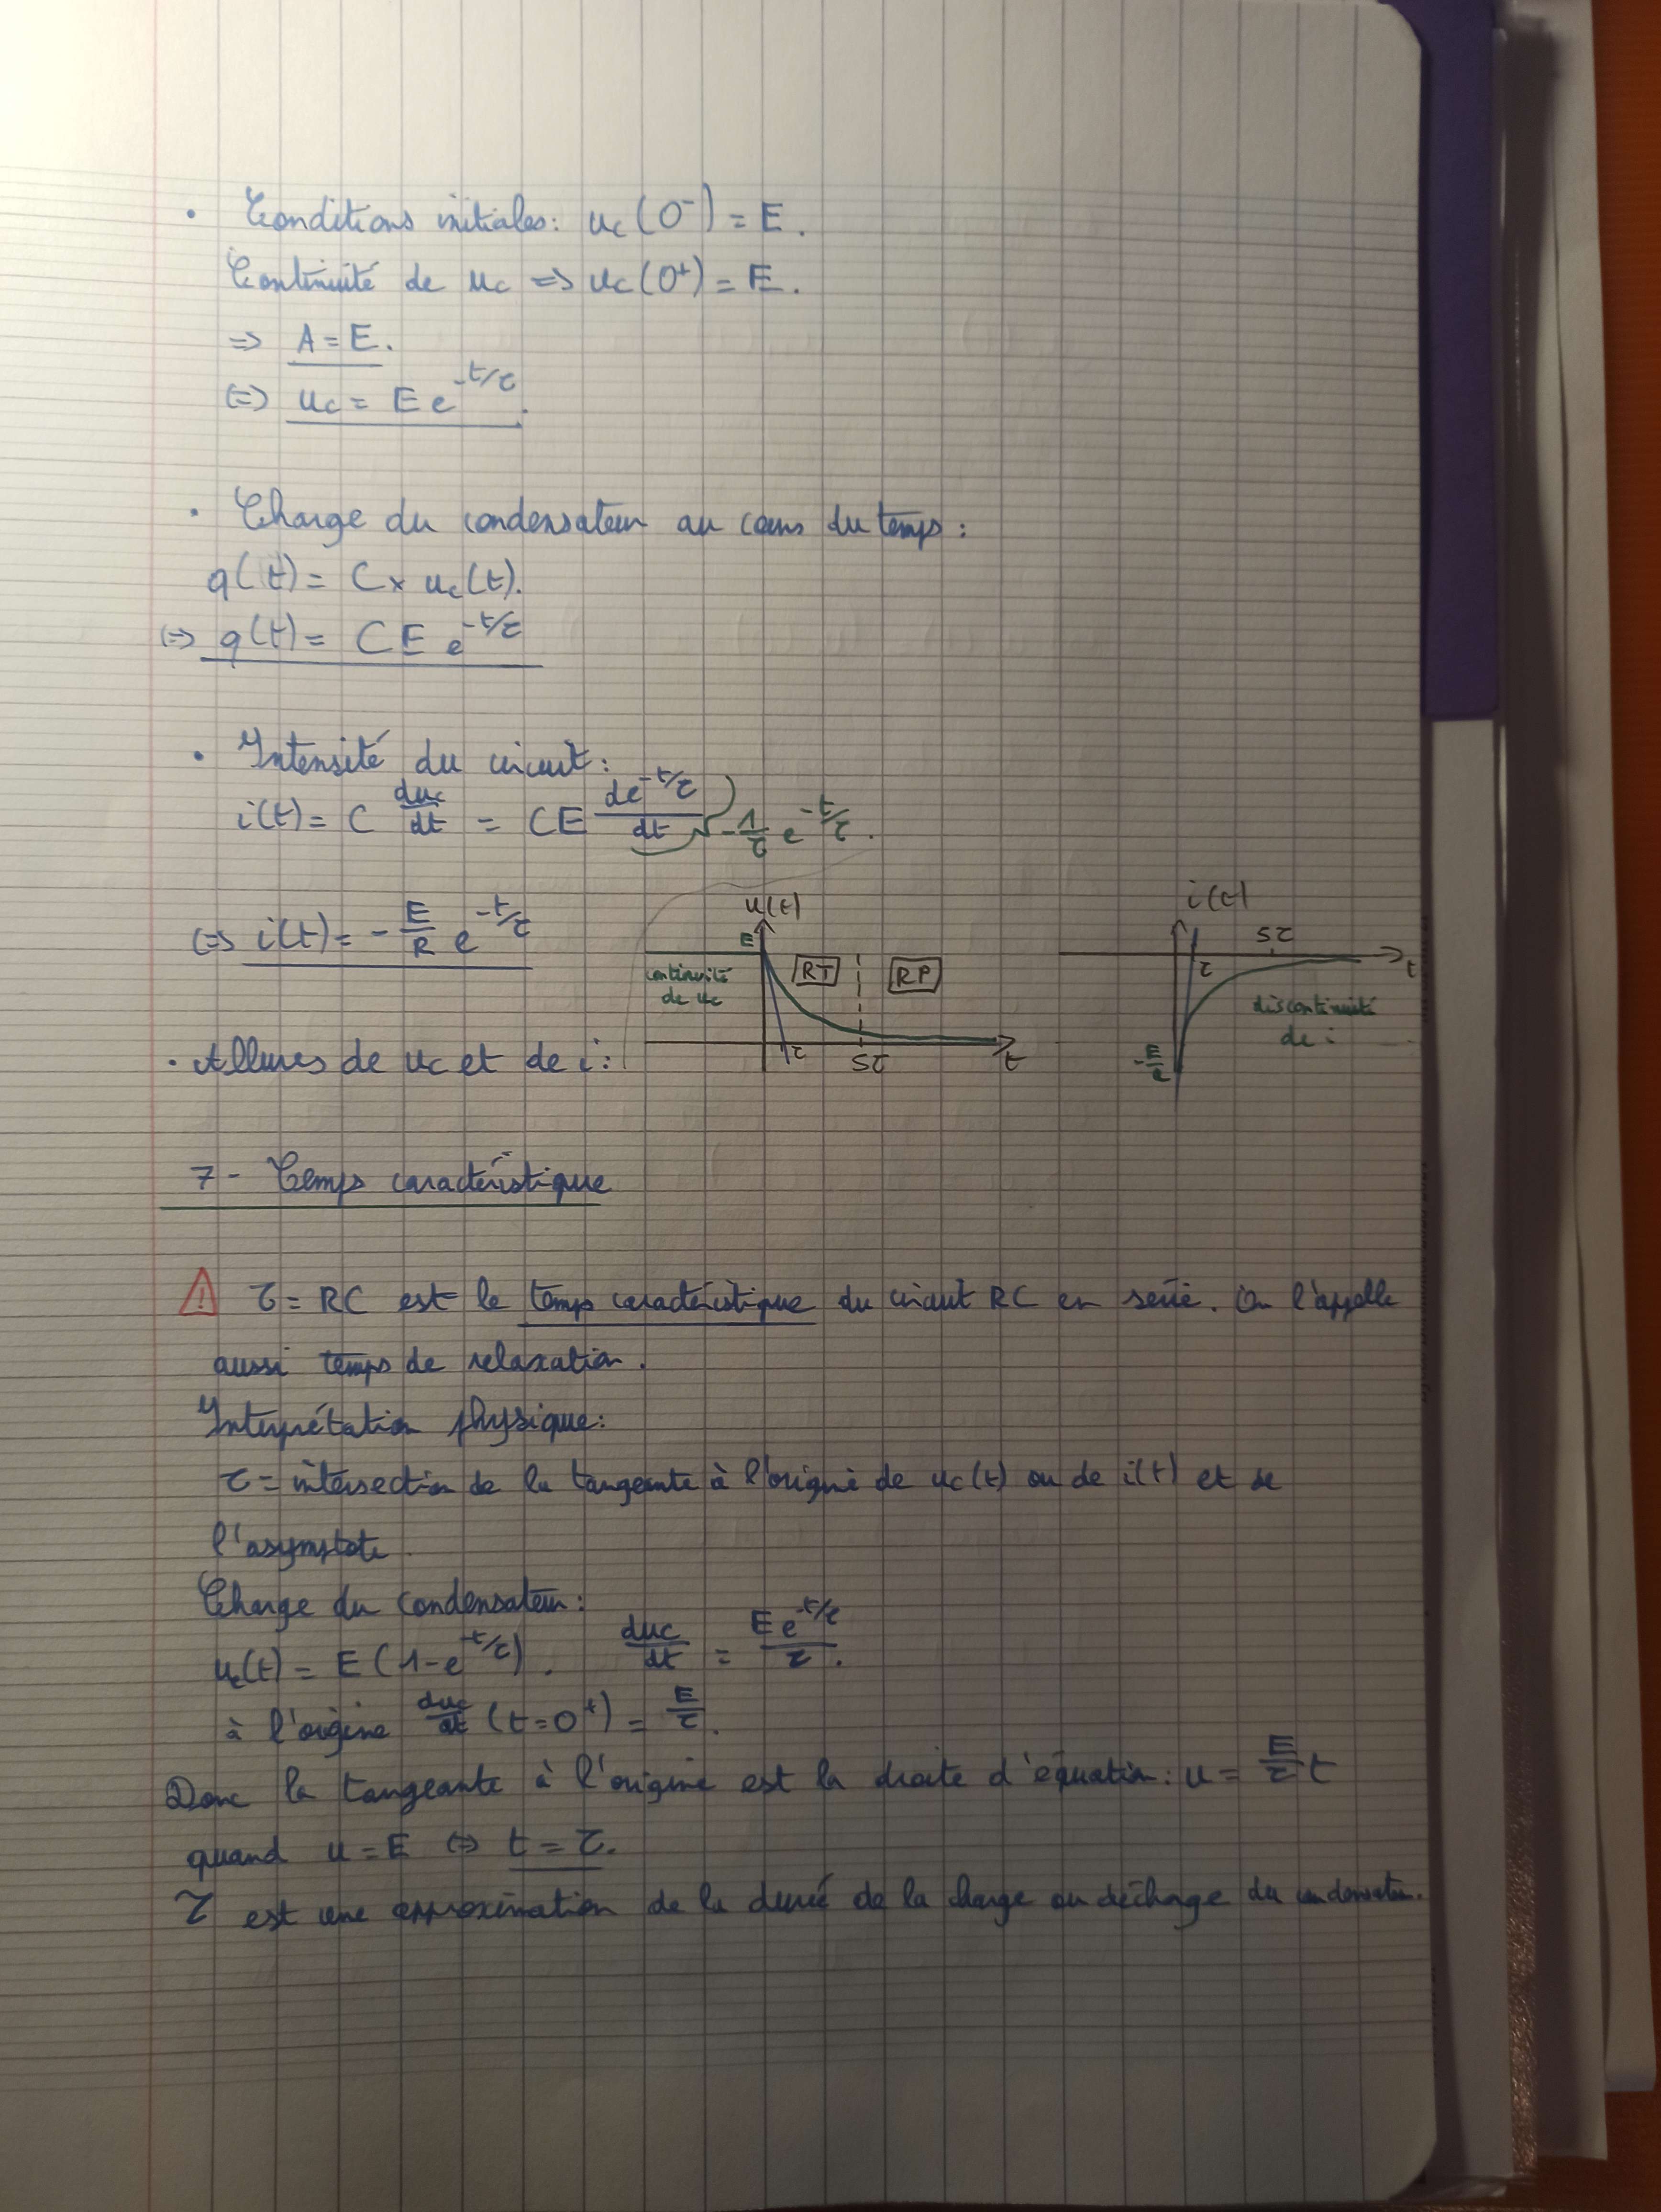 • Conditions initiales: uc(0⁻) = E.
Continuité de uc => uc(0⁺) = E.
=> A = E.
(=> uc = E e^-t/τ.
• Charge du condensateur au cours du temps :
q(t) = C × uc(t).
(=> q(t) = CE e^-t/τ
• Intensité du circuit :
i(t) = C duc/dt = CE de^-t/τ/dt -1/τ e^-t/τ.
(=> i(t) = - E/R e^-t/τ
• Allures de uc et de i :
u(t)
E
continuité
de uc
RT
RP
τ
5τ
t
i(t)
5τ
τ
t
discontinuité
de i
7 - Temps caractéristique
⚠ τ = RC est le temps caractéristique du circuit RC en série. On l'appelle
aussi temps de relaxation.
Interprétation physique:
τ = intersection de la tangeante à l'origine de uc(t) ou de i(t) et de
l'asymptote
Charge du condensateur :
uc(t) = E (1-e^-t/τ). duc/dt = E e^-t/τ/τ.
à l'origine duc/dt (t=0⁺) = E/τ.
Donc la tangeante à l'origine est la droite d'équation : u = E/τ t
quand u = E <=> t = τ.
τ est une approximation de la durée de la charge ou décharge du condensateur.